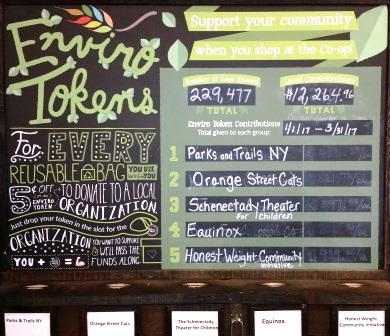 Enviro
Tokens
Support your community
when you shop at the Co-op!
Number of Bags Reused
229,477
TOTAL
Local Contributions
$12,264.96
TOTAL
Enviro Token Contributions
Total given to each group:
1/1/17 - 3/31/17
1 Parks and Trails NY
2 Orange Street Cats
3 Schenectady Theater
for Children
4 Equinox
5 Honest Weight Community
Initiative
For EVERY
REUSABLE BAG YOU USE
5¢ OFF
ENVIRO
TOKEN
TO DONATE TO A LOCAL
ORGANIZATION
Just drop your token in the slot for the
ORGANIZATION
YOU WANT TO SUPPORT
& WE'LL PASS THE
FUNDS ALONG
YOU + =
Parks & Trails NY
Orange Street Cats
The Schenectady
Theater for Children
Equinox
Honest Weight
Community Initiative